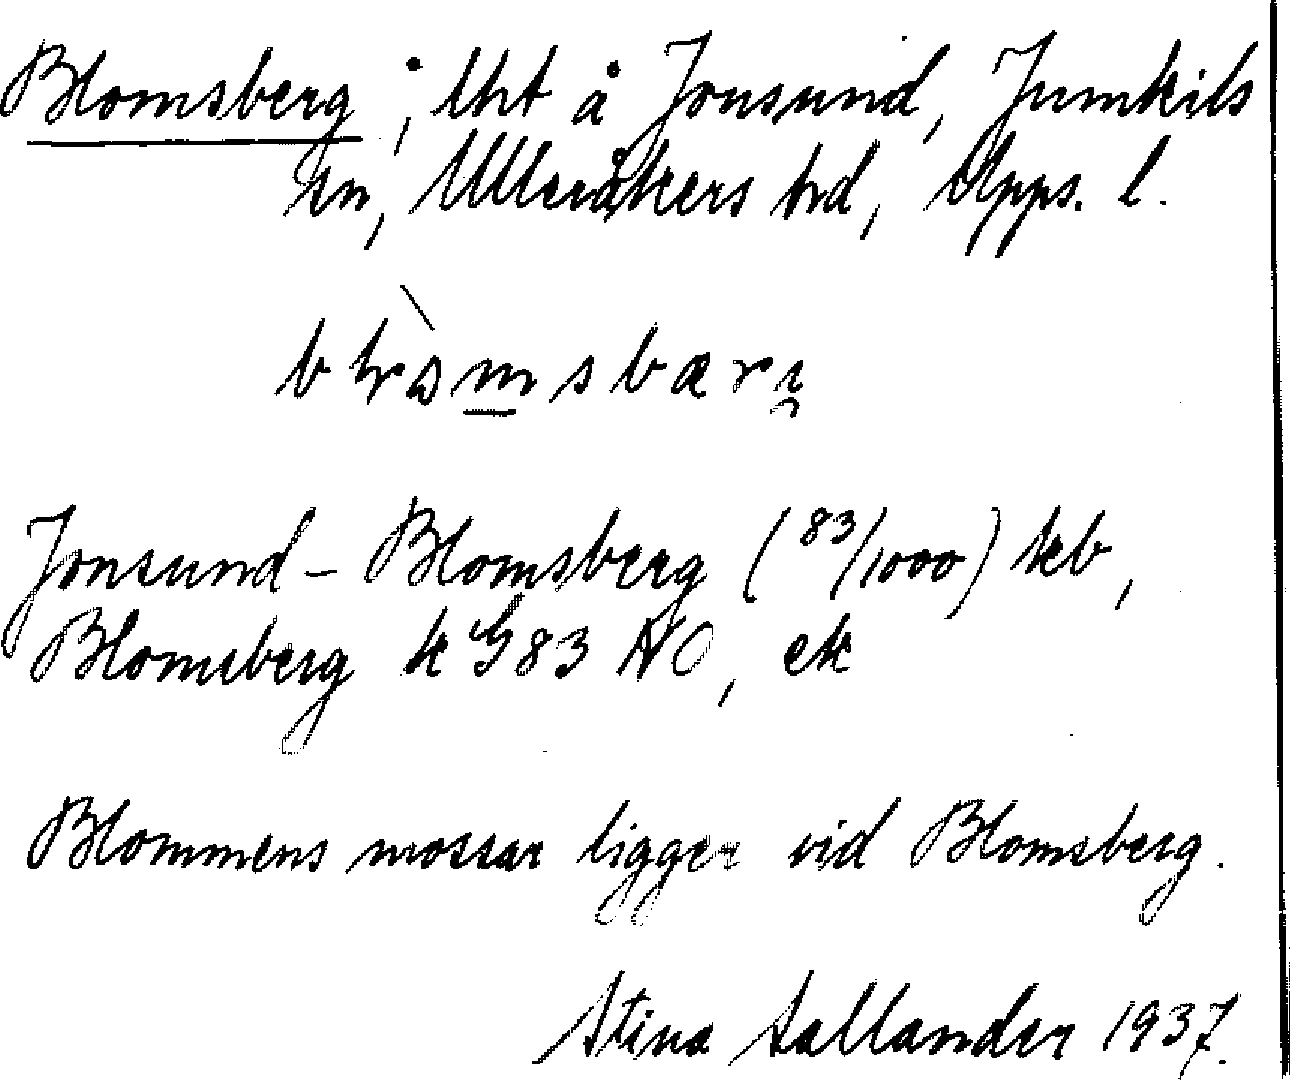 Blomsberg; lht å Jonsund, Jumkils
sn, Ulleråkers hd, Upps. l.
Jonsund – Blomsberg (83/1000) kb,
Blomsberg k G83 NO, ek
Blommens mossar ligger vid Blomsberg.
Stina Sallander 1937.